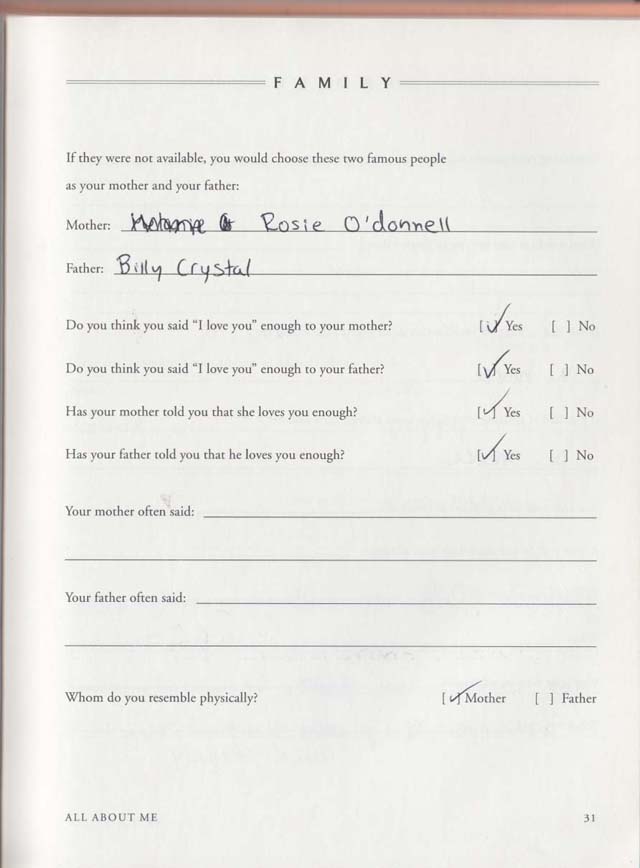 FAMILY
If they were not available, you would choose these two famous people
as your mother and your father:
Mother: Rosie O'donnell
Father: Billy Crystal
Do you think you said “I love you” enough to your mother? [✓] Yes [ ] No
Do you think you said “I love you” enough to your father? [✓] Yes [ ] No
Has your mother told you that she loves you enough? [✓] Yes [ ] No
Has your father told you that he loves you enough? [✓] Yes [ ] No
Your mother often said:
Your father often said:
Whom do you resemble physically? [✓] Mother [ ] Father
ALL ABOUT ME 31